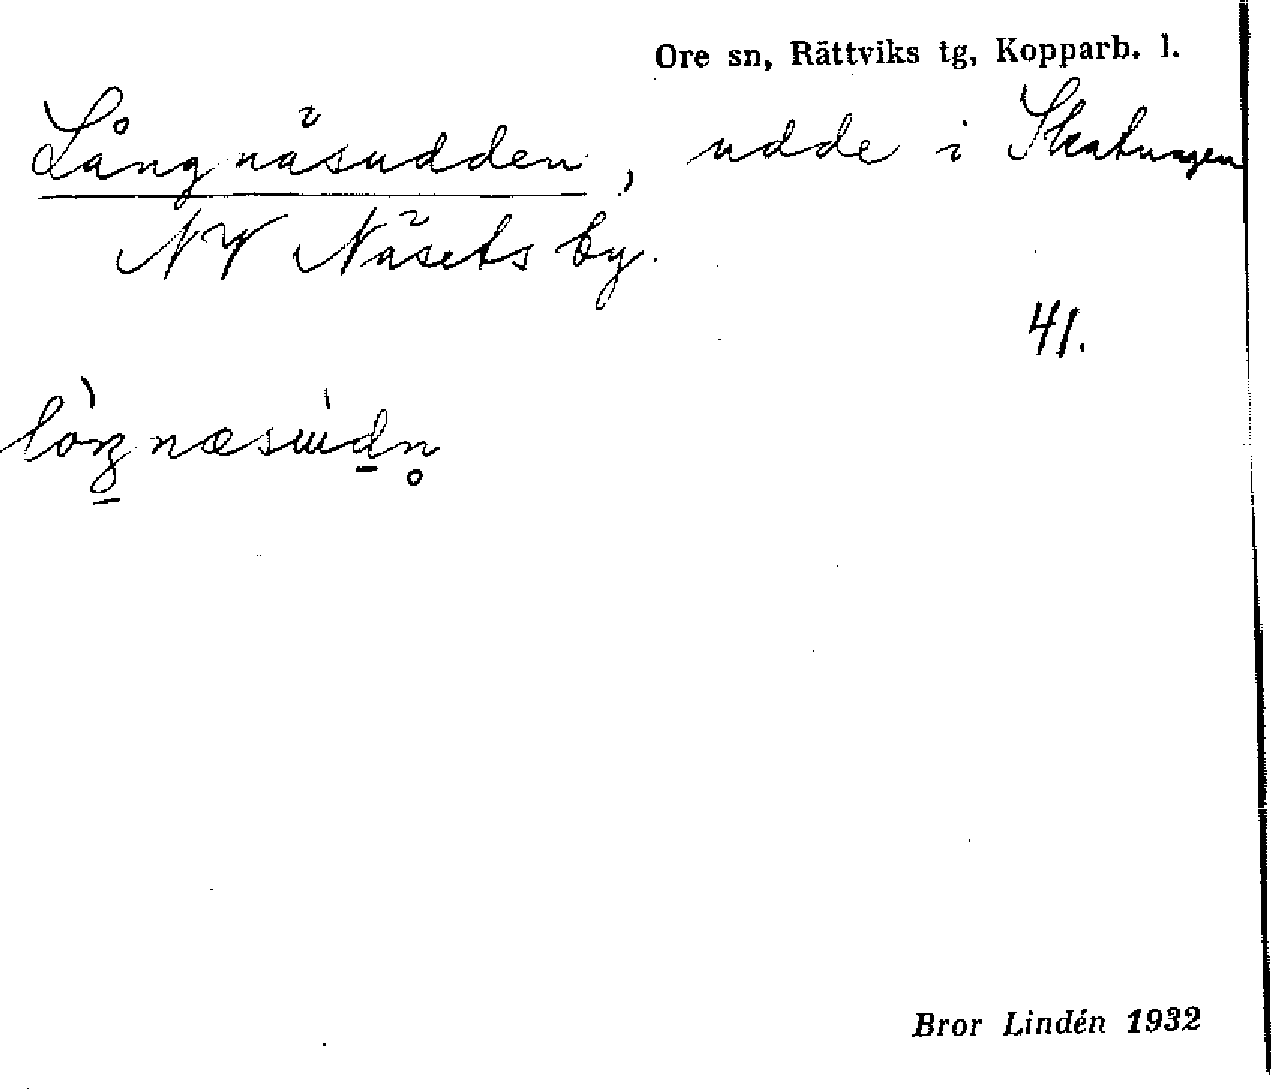 Ore sn, Rättviks tg, Kopparb. l.
Långnäsudden, udde i Skatungen
NV Näsets by.
41.
Bror Lindén 1932